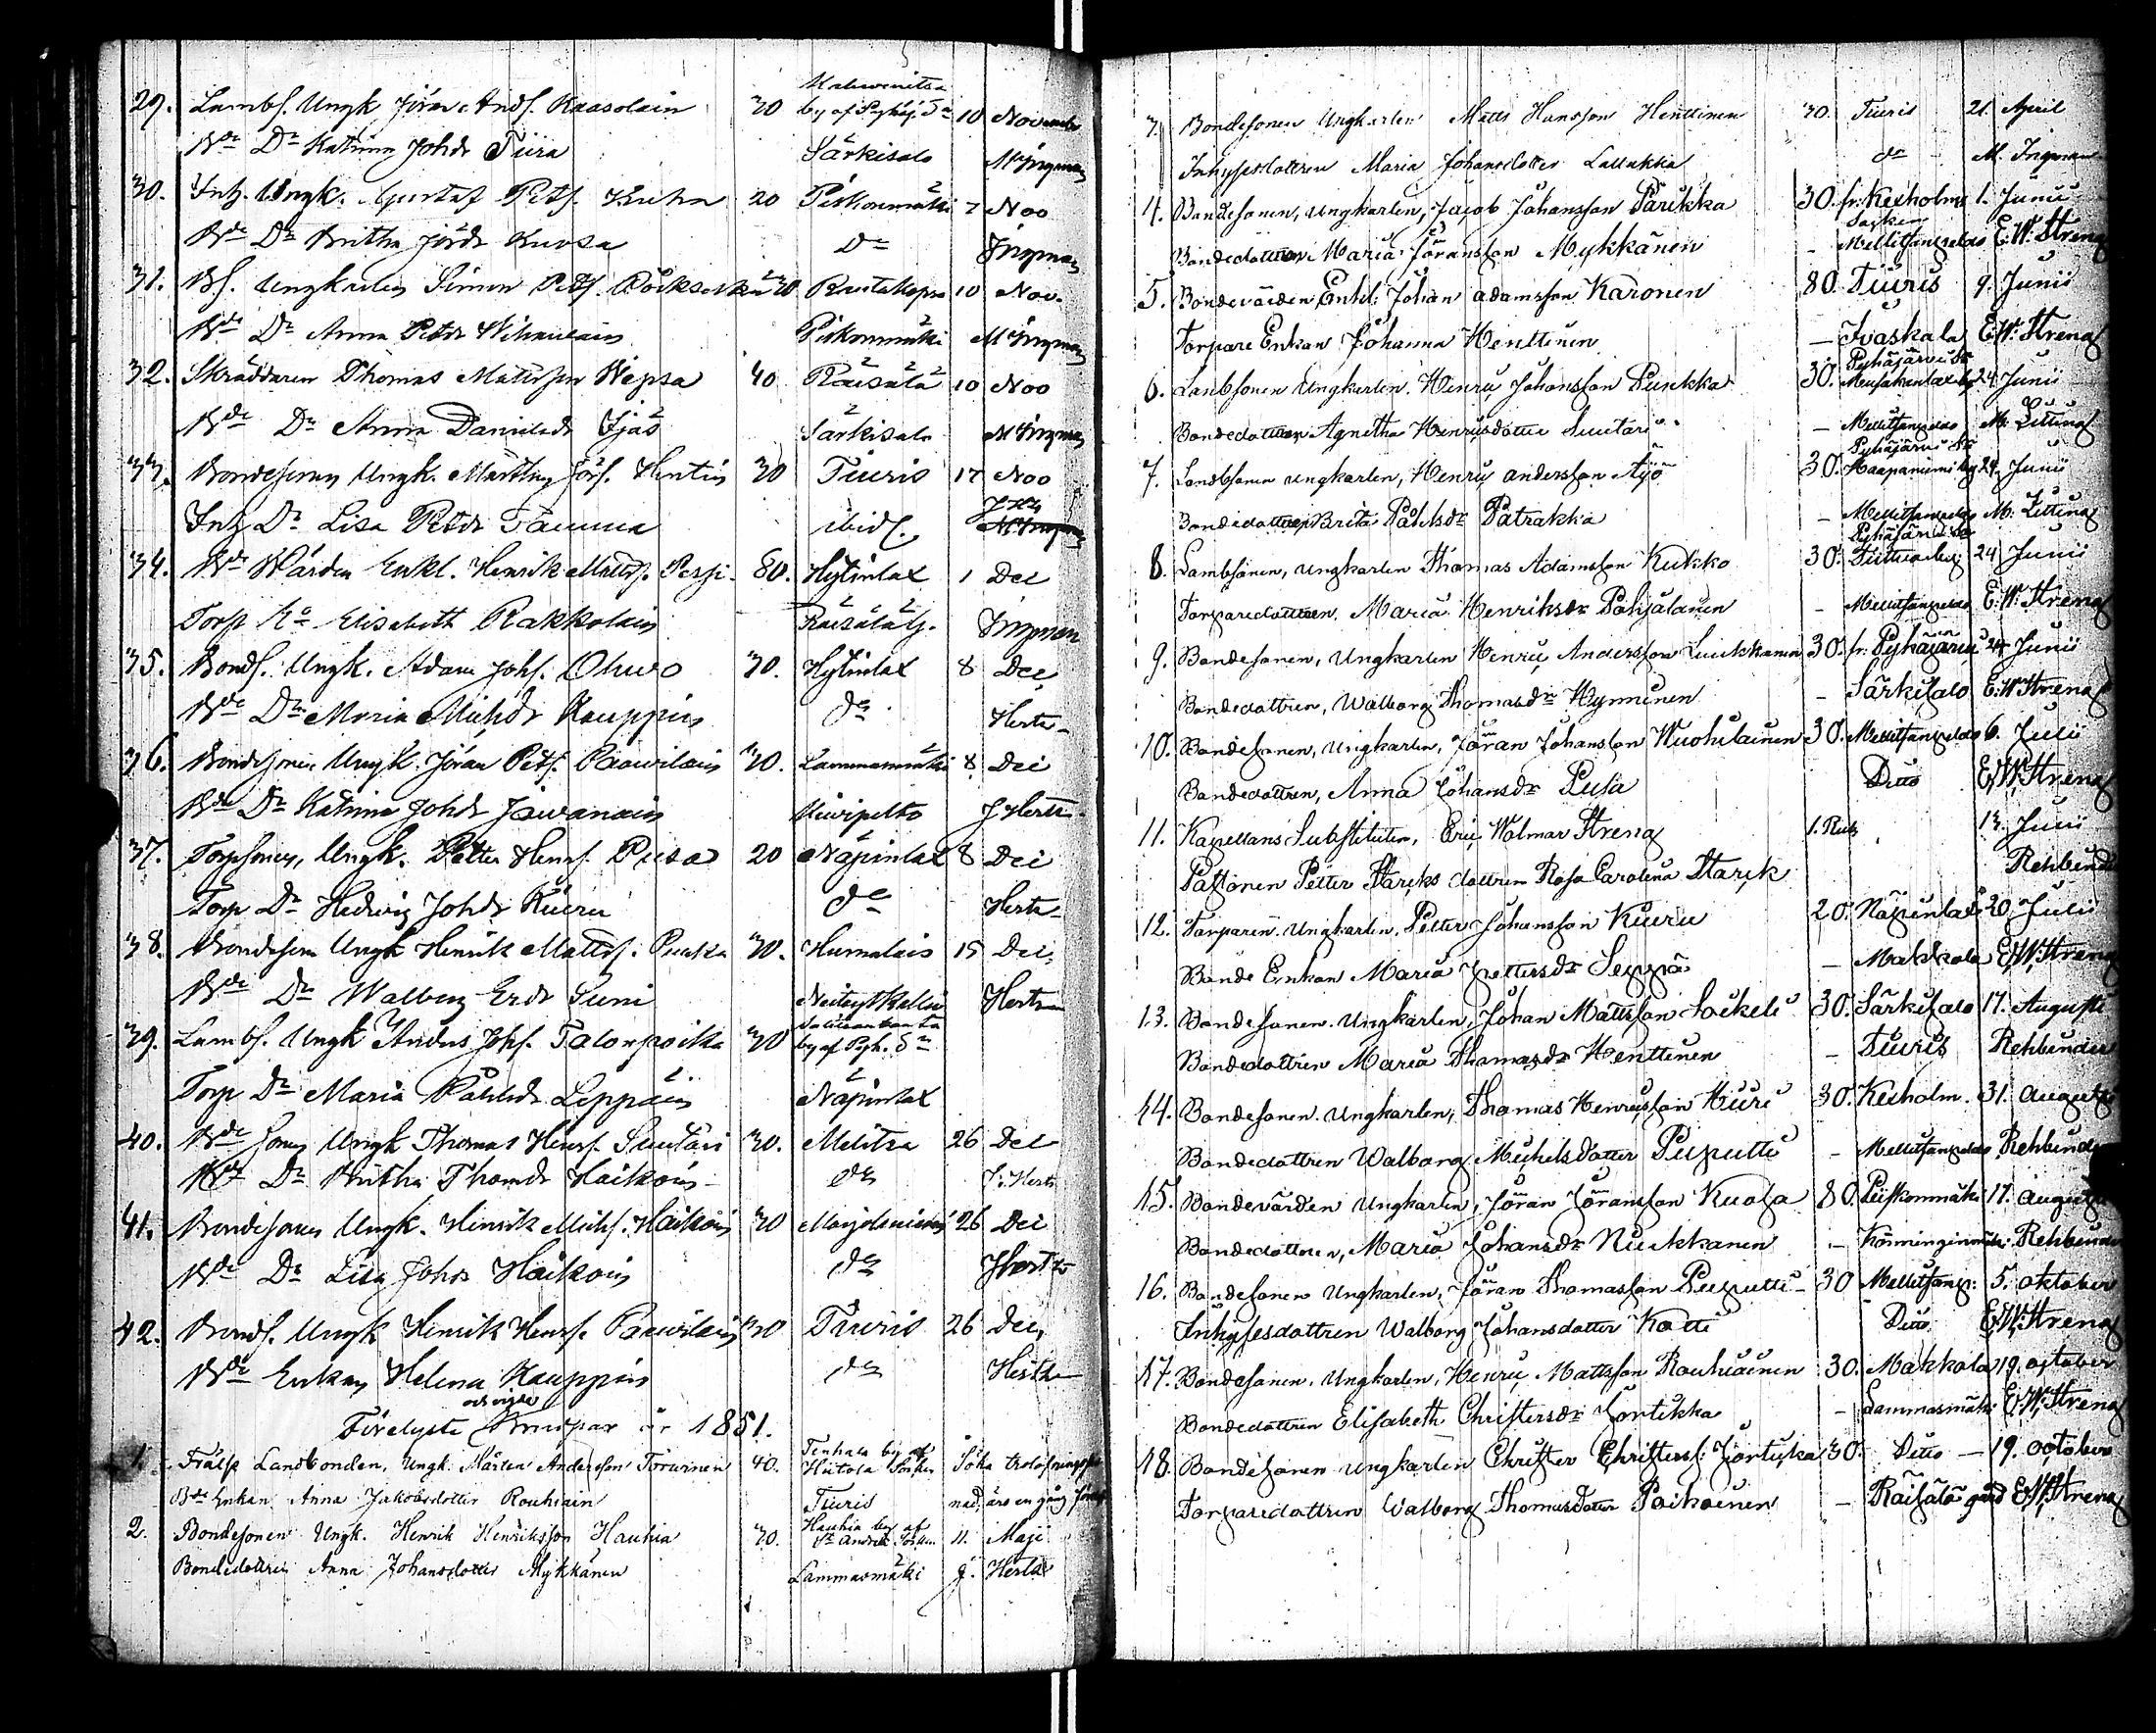 29. Lambs. Ungk Jöran Ands. Kaasolain 30 by af Pyhäj. Sn 10 November
Bde Dr Katrina Johdr Tiira Särkisalo M Ingman
30. Inh. Ungk. Gustaf Pets. Kuhn 20 Piskonmäki 7 Nov
Bde Dr Britha Jördr Kuosa Do Ingman
31. Bs. Ungkarlen Simon Pets. 30 10 Nov.
Bde Dr Anna Petdr Wihavain Piskonmäki M Ingman
32. Skräddaren Thomas Mattsson Wepsä 40 Räisälä 10 Nov
Bde Dr Anna Danielsdr Äjäs Särkisalo M Ingman
33. Bondesonen Ungk. Mårthen Jörs. Hentin 30 Tiuris 17 Nov
Inh Dr Lisa Petdr Tamma ibid.
34. Bde Wärden Enkl. Henrik Matts. Pessi 80. Hytinlax 1 Dec
Torp Ea Elisabeth Rakkolain Räisälä g. Ingman
35. Bonds. Ungk. Adam Johs. Ohwo 30. Hytinlax 8 Dec
Bde Dr Maria Michdr Kauppin do Hertz
36. Bondesonen Ungk. Jöran Pets. Paawilain 30. Lammasmäki 8 Dec
Bde Dr Katrina Johdr Jäwanain Unnipelto J Hertz
37. Torpsonen, Ungk. Petter Henrs. Pusa 20 Näpinlax 8 Dec
Torp Dr Hedwig Johdr Kiuru do Hertz
38. Bondeson Ungk Henrik Matts. Pukka 30. Humalais 15 Dec
Bde Dr Walborg Erdr Suni Hertz
39. Lambs. Ungk Anders Johs. Talonpoika 30 by af Pyh. Sn
Torp Dr Maria Påhlsdr Leppäin Näpinlax
40. Bde sonen Ungk Thomas Henrs. Suutari 30. Melitsa 26 Dec
Bde Dr Britha Thomdr Haikoin do J. Hertz
41. Bondesonen Ungk. Henrik Michs. Haikoin 30 Marjolaniemi 26 Dec
Bde Dr Lisa Johdr Haikoin do J Hertz
42. Bonds. Ungk Henrik Henrs. Paawilain 30 Tiuris 26 Dec,
Bde Enkan Helena Kauppin do Hertz
och vigde
Förelyste Brudpar år 1851.
1. Frälse Landbonden, Ungk. Mårten Andersson Torwinen 40. Tenhala by af Hiitola Socken
Bde Enkan Anna Jakobsdotter Rouhiain Tiuris
2. Bondesonen Ungk. Henrik Henriksson Hauhia 30. Hauhia by af St Andreæ Socken 11. Maji
Bondedottren Anna Johansdotter Mykkänen Lammasmäki J. Hertz
3. Bondesonen Ungkarlen Matts Hansson Henttinen 30. Tiuris 21. April
Inhysesdottren Maria Johansdotter Lallukka do M. Ingman
4. Bondesonen, Ungkarlen, Jacob Johansson Pärikkä 30. fr. Kexholms Socken 1. Junii
Bondedottren Maria Göransson Mykkänen - Mellitsanselas E.W. Streng
5. Bondevärden Enkl. Johan Adamsson Karonen 80. Tiuris 9. Junii
Torpare Enkan Johanna Henttinen - Ivaskala E.W. Streng
6. Lambsonen Ungkarlen. Henric Johansson Punkka 30. Pyhäjärvi Sn 24. Junii
Bondedottren Agnetha Henricsdotter Suutari - Mellitsanselas M. Litting
7. Lambsonen Ungkarlen, Henric Andersson Äijö 30. Pyhäjärvi Sn Haapaniemi by 24. Junii
Bondedottren Brita Påhlsdr Patrakka - Mellitsanselas M. Litting
8. Lambsonen, Ungkarlen Thomas Adamsson Kukko 30. Pyhäjärvi Sn 24 Junii
Torparedottren. Maria Henriksdr Pohjalainen - Mellitsanselas E.W. Streng
9. Bondesonen, Ungkarlen Henric Andersson Luukkanen 30. fr. Pyhäjärvi 24 Junii
Bondedottren, Walborg Thomasdr Hynninen - Särkisalo E.W. Streng
10. Bondesonen, Ungkarlen, Jöran Johansson Wuohilainen 30. Mellitsanselas 6. Julii
Bondedottren, Anna Johansdr Pusa Ditto E.W. Streng
11. Kapellans Substituten, Eric Wolmar Streng 1. Rub 13. Julii
Pastoren Petter Starcks dottren Rosa Carolina Starck Rehbinder
12. Torparen. Ungkarlen. Petter Johansson Kiuru 20. Näpinlax 20. Julii
Bonde Enkan Maria Pettersdr Seppä - Makkola E.W. Streng
13. Bondesonen. Ungkarlen, Johan Mattsson Loikeli 30. Särkisalo 17. Augusti
Bondedottren Maria Thomasdr Henttinen - Tiuris Rehbinder
14. Bondesonen. Ungkarlen, Thomas Henricsson Hiiri 30. Kexholm. 31. Augusti
Bondedottren Walborg Michelsdotter Peiputti - Mellitsanselas Rehbinder
15. Bondevärden Ungkarlen, Jöran Jöransson Kuosa 80. Piiskonmäki 17. Augusti
Bondedottren, Maria Johansdr Nuckkanen - Rehbinder
16. Bondesonen Ungkarlen, Jöran Thomasson Peiputti 30 Mellitsans: 5. Oktober
Inhysesdottren Walborg Johansdotter Kotti Ditto E.W. Streng
17. Bondesonen. Ungkarlen, Henric Mattsson Rouhiainen 30. Makkola 19. October
Bondedottren Elisabeth Christersdr Jortikka - Lammasmäki E.W. Streng
18. Bondesonen Ungkarlen Christer Christerss: Jortikka 30. Ditto - 19. October
Torparedottren Walborg Thomasdotter Poikoinen - Räisälä gård E.W. Streng